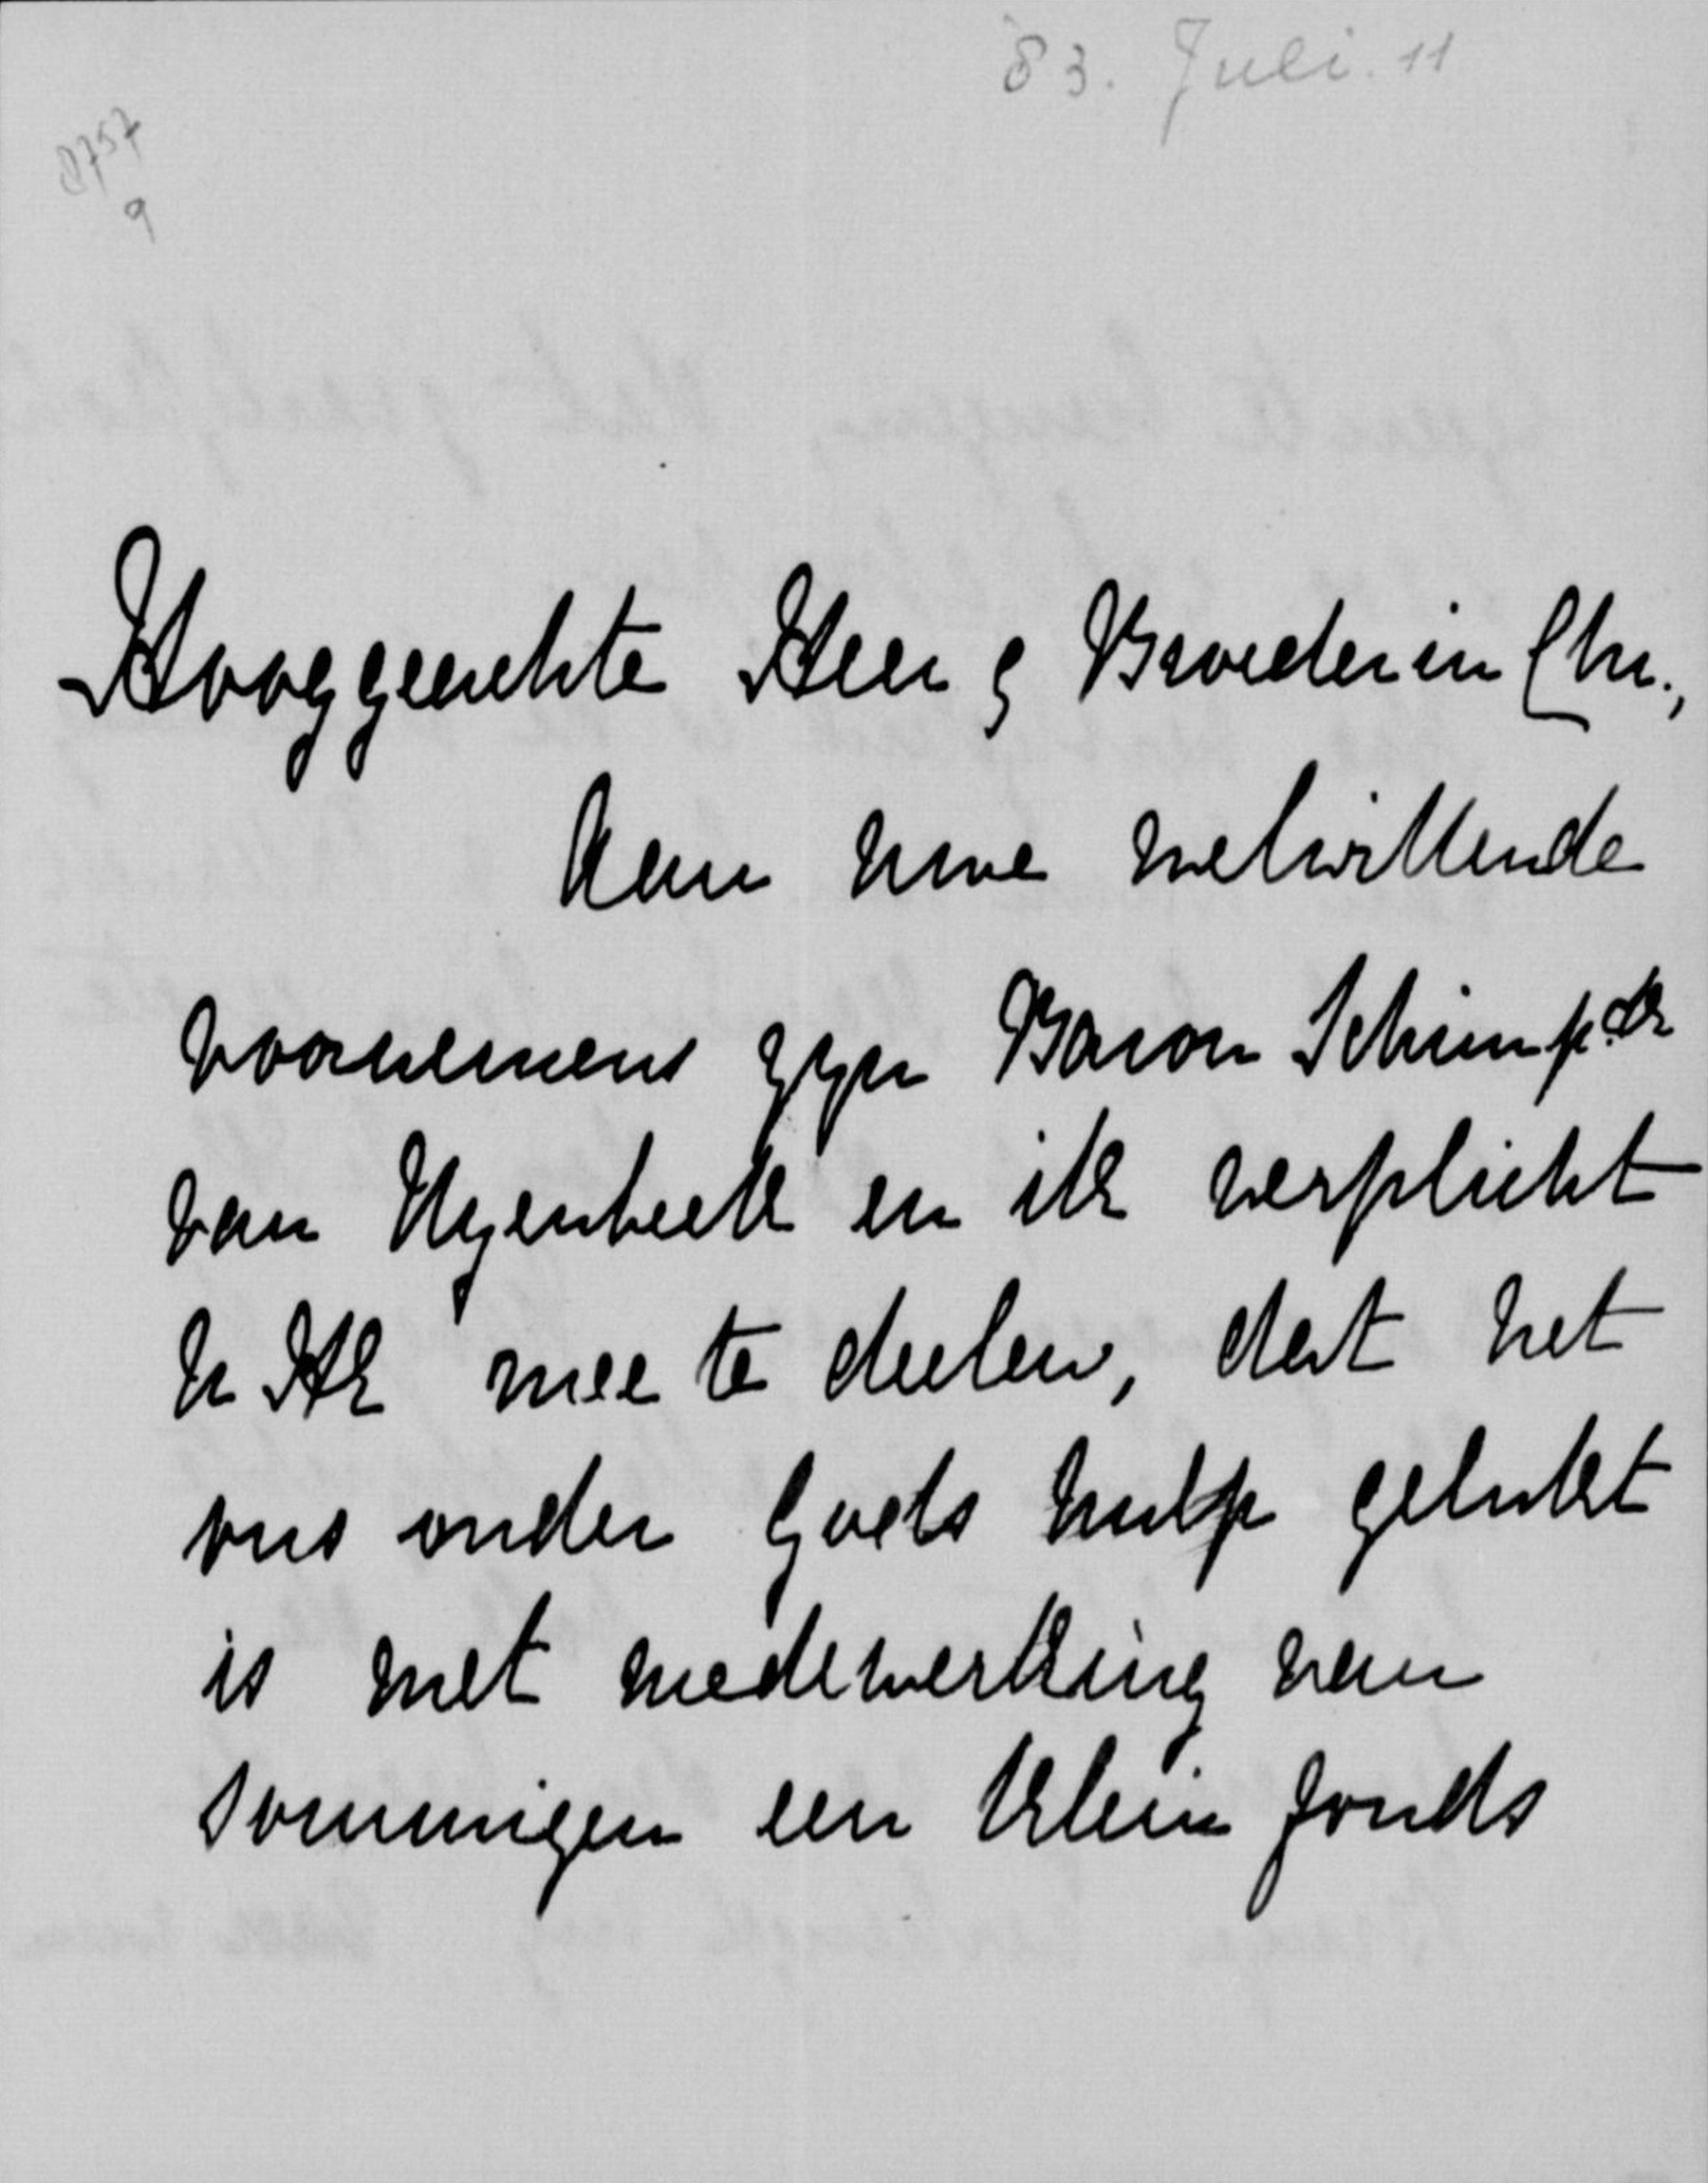 83. Juli. 11
8757
9
Hooggeachte Heer & Broeder in Chr.,
Aan uwe welwillende
voornemens zijn Baron Schimp. dr
van Uyenbeek en ik verplicht
U HE mee te deelen, dat het
ons onder Gods hulp gelukt
is met medewerking van
sommigen een klein fonds